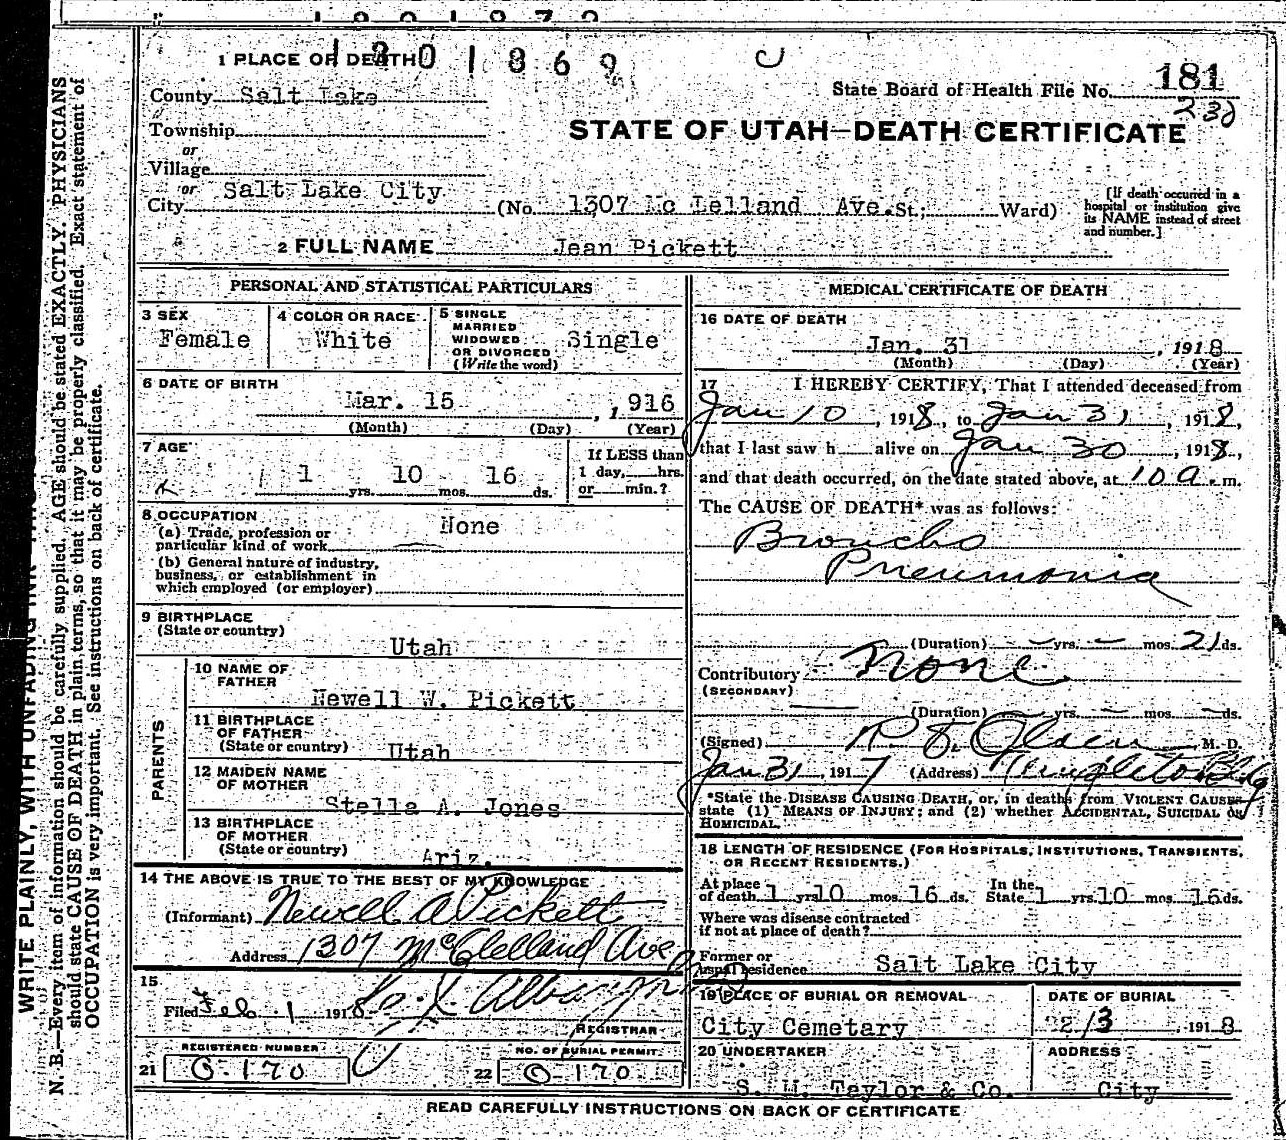 1 PLACE OF DEATH 1801869
State Board of Health File No. 181
230
County Salt Lake
STATE OF UTAH—DEATH CERTIFICATE
Township
or
Village
or
City Salt Lake City (No. 1307 Mc Lelland Ave. St.; Ward)
[If death occurred in a hospital or institution give its NAME instead of street and number.]
2 FULL NAME Jean Pickett
PERSONAL AND STATISTICAL PARTICULARS
3 SEX Female
4 COLOR OR RACE White
5 SINGLE MARRIED WIDOWED OR DIVORCED (Write the word) Single
6 DATE OF BIRTH
Mar. 15, 1916
(Month) (Day) (Year)
7 AGE
1 yrs. 10 mos. 16 ds.
If LESS than
1 day, hrs.
or min.?
8 OCCUPATION
(a) Trade, profession or
particular kind of work None
(b) General nature of industry,
business, or establishment in
which employed (or employer)
9 BIRTHPLACE
(State or country)
Utah
PARENTS
10 NAME OF
FATHER
Newell W. Pickett
11 BIRTHPLACE
OF FATHER
(State or country) Utah
12 MAIDEN NAME
OF MOTHER
Stella A. Jones
13 BIRTHPLACE
OF MOTHER
(State or country)
Ariz.
14 THE ABOVE IS TRUE TO THE BEST OF MY KNOWLEDGE
(Informant) Newell A Pickett
Address 1307 McClelland Ave
15
Filed Feb 1 1918
REGISTRAR
REGISTERED NUMBER
21 G-170
NO. OF BURIAL PERMIT
22 G-170
MEDICAL CERTIFICATE OF DEATH
16 DATE OF DEATH
Jan. 31, 1918
(Month) (Day) (Year)
17 I HEREBY CERTIFY, That I attended deceased from
Jan 10, 1918, to Jan 31, 1918,
that I last saw h alive on Jan 30, 1918,
and that death occurred, on the date stated above, at 10 a. m.
The CAUSE OF DEATH* was as follows:
Broncho
Pneumonia
(Duration) — yrs. — mos. 21 ds.
Contributory None
(SECONDARY)
(Duration) — yrs. — mos. — ds.
(Signed) Olsen M. D.
Jan 31, 1917 (Address) Templeton Bldg
*State the DISEASE CAUSING DEATH, or, in deaths from VIOLENT CAUSES
state (1) MEANS OF INJURY; and (2) whether ACCIDENTAL, SUICIDAL OR
HOMICIDAL.
18 LENGTH OF RESIDENCE (FOR HOSPITALS, INSTITUTIONS, TRANSIENTS,
OR RECENT RESIDENTS.)
At place
of death 1 yrs 10 mos. 16 ds. In the
State 1 yrs. 10 mos. 16 ds.
Where was disease contracted
if not at place of death?
Former or
usual residence Salt Lake City
19 PLACE OF BURIAL OR REMOVAL
City Cemetary
DATE OF BURIAL
2/3, 1918
20 UNDERTAKER
S. M. Taylor & Co.
ADDRESS
City
READ CAREFULLY INSTRUCTIONS ON BACK OF CERTIFICATE
WRITE PLAINLY, WITH UNFADING INK
N. B.—Every item of information should be carefully supplied. AGE should be stated EXACTLY. PHYSICIANS
should state CAUSE OF DEATH in plain terms, so that it may be properly classified. Exact statement of
OCCUPATION is very important. See instructions on back of certificate.